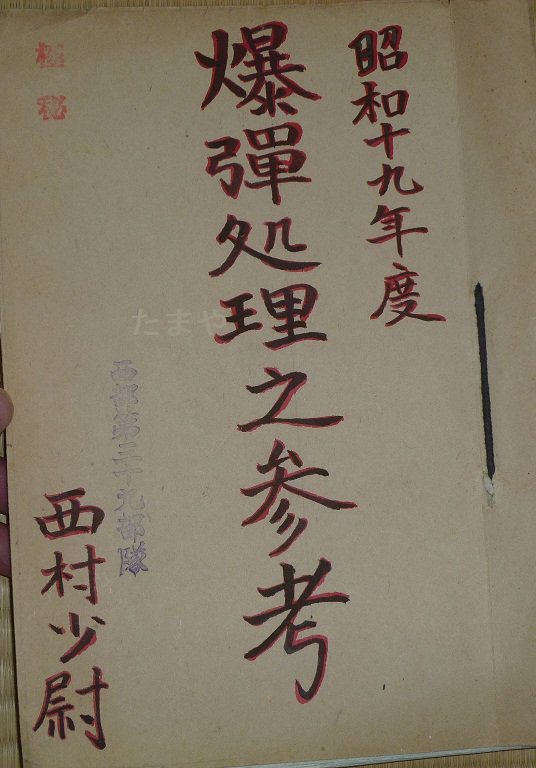 昭和十九年度
爆彈処理之参考
西部第三十九部隊
西村少尉
極秘
たまや